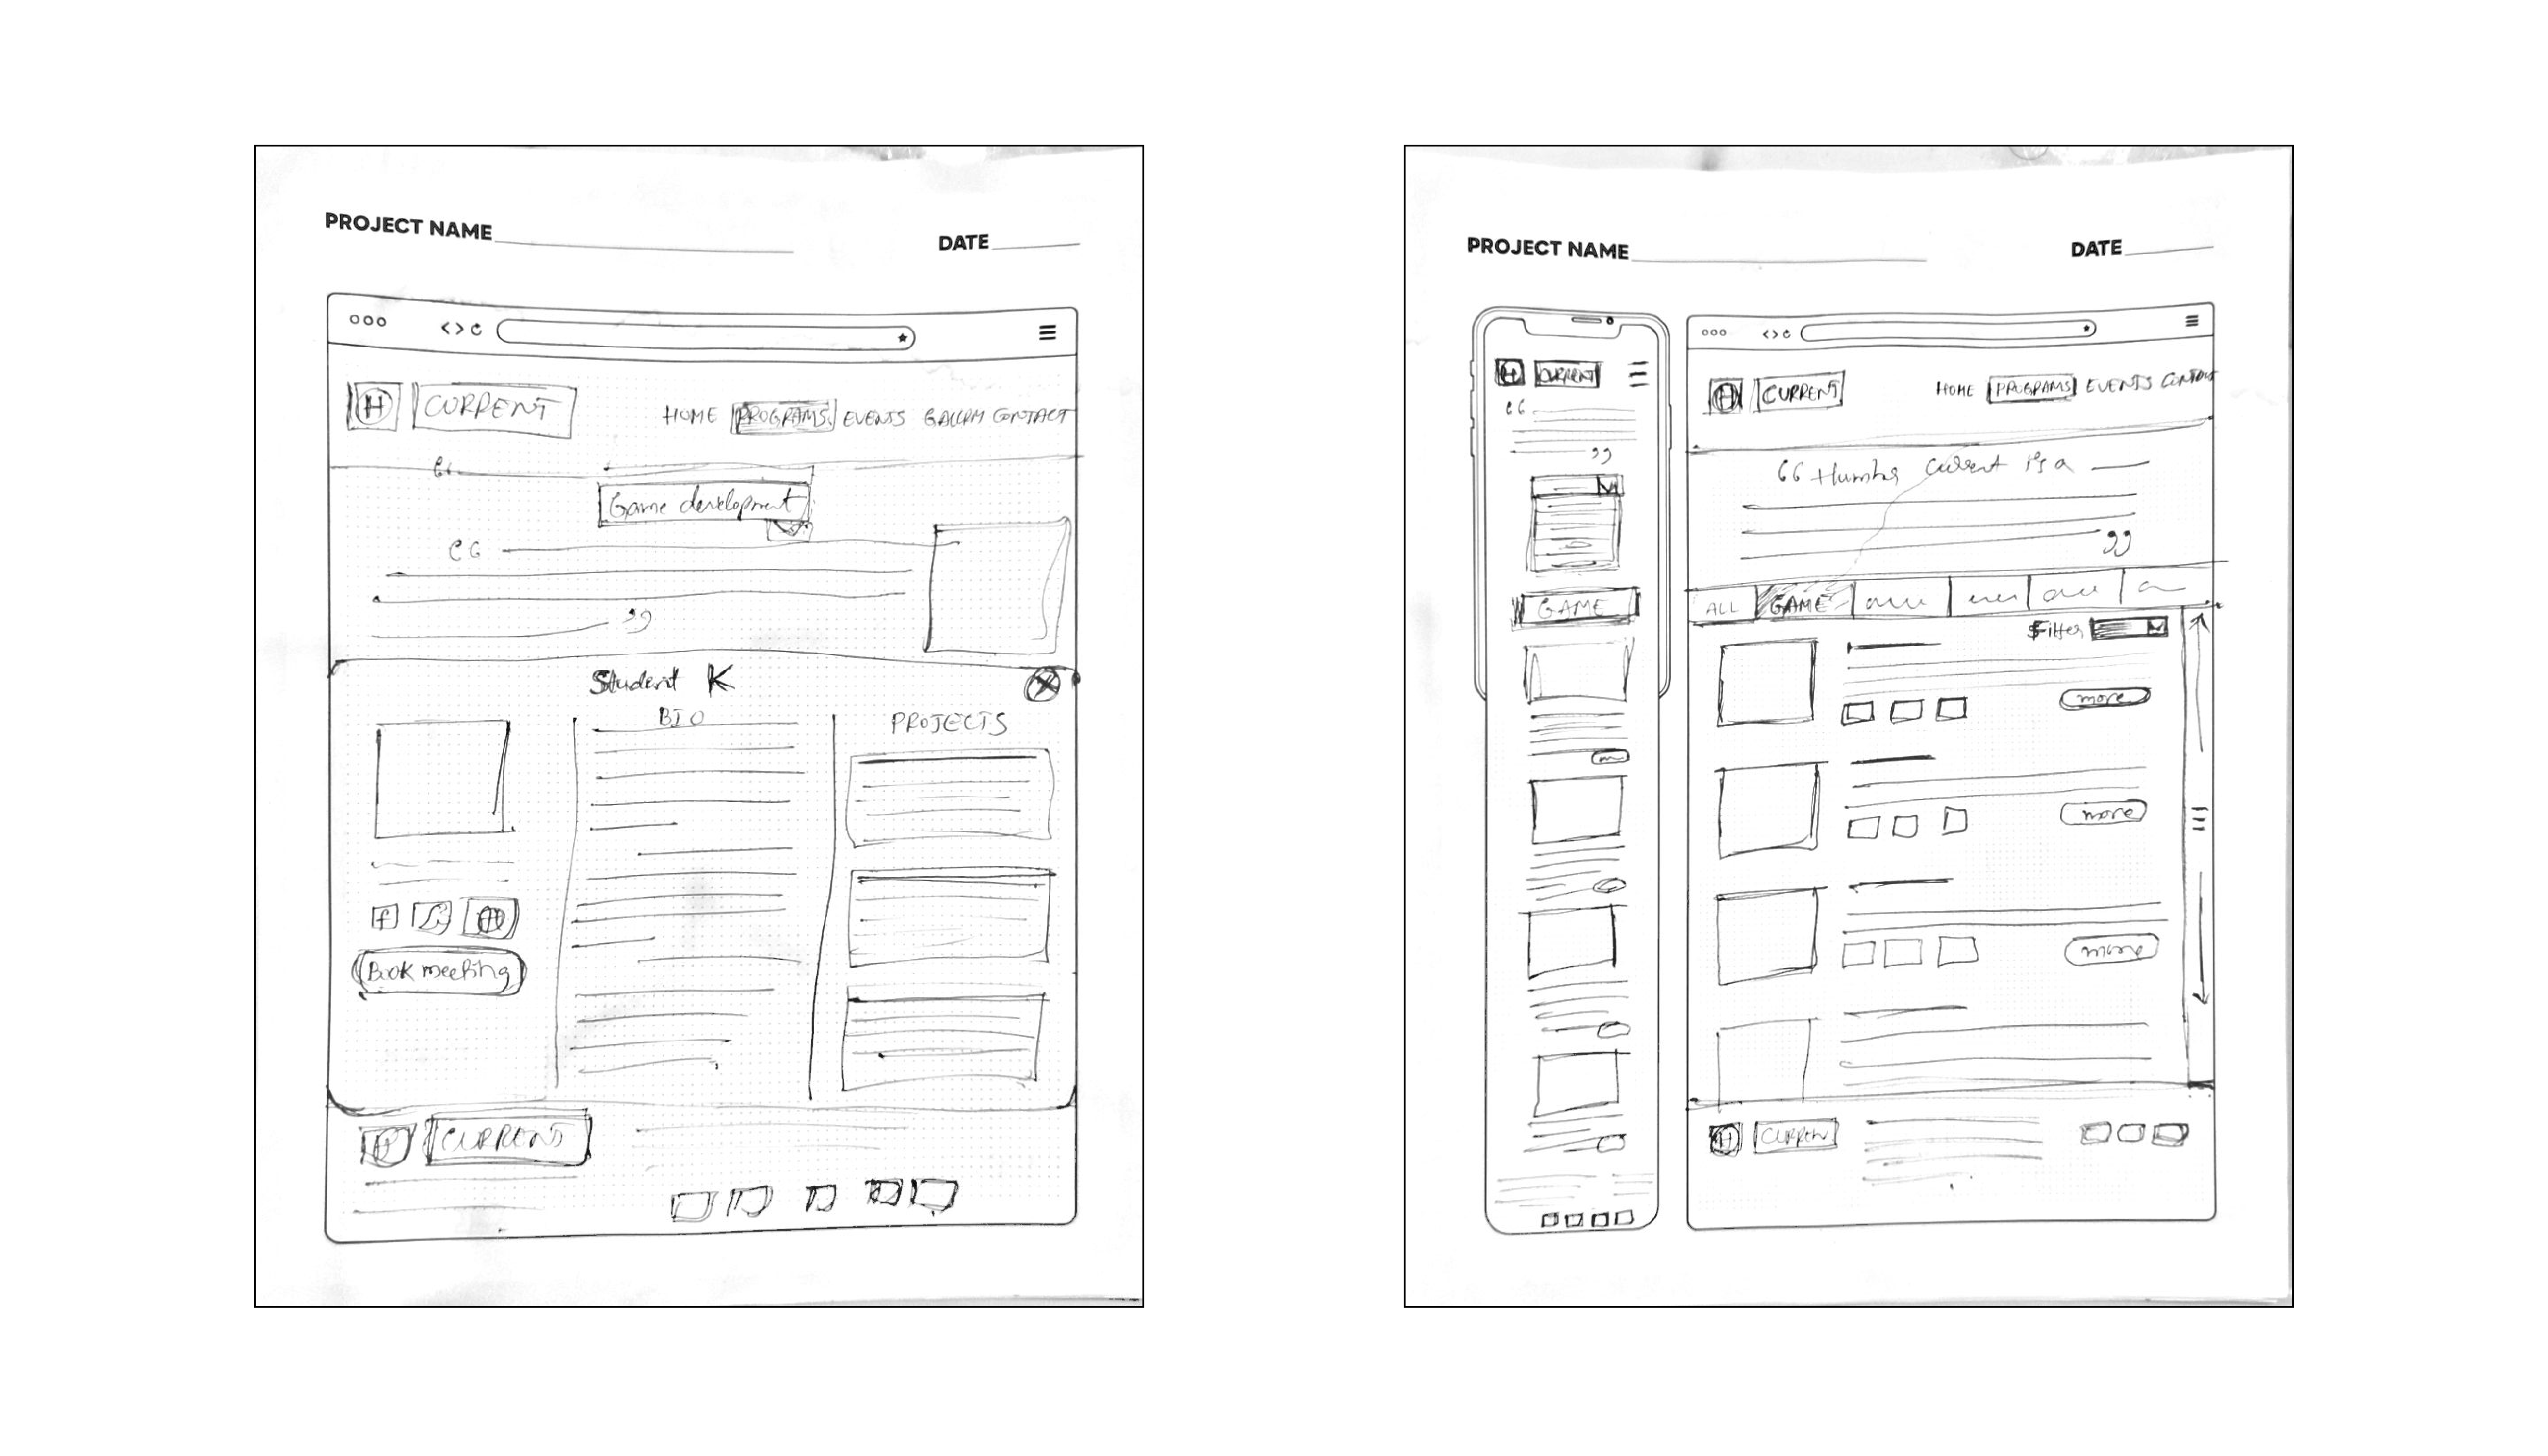 PROJECT NAME
DATE
H CURRENT
HOME PROGRAMS EVENTS CONTACT
Game development
Student K
BIO
PROJECTS
f
Book meeting
CURRENT
PROJECT NAME
DATE
H CURRENT
GAME
H CURRENT
HOME PROGRAMS EVENTS CONTACT
Current is a
ALL GAME
Filter
more
more
more
H CURREN